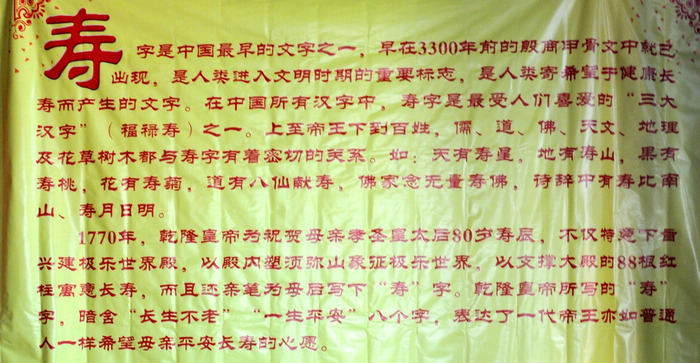 寿字是中国最早的文字之一，早在3300年前的殷商甲骨文中就已
出现，是人类进入文明时期的重要标志，是人类寄希望于健康长
寿而产生的文字。在中国所有汉字中，寿字是最受人们喜爱的“三大
汉字”（福禄寿）之一。上至帝王下到百姓，儒、道、佛、天文、地理
及花草树木都与寿字有着密切的关系。如：天有寿星，地有寿山，果有
寿桃，花有寿菊，道有八仙献寿，佛家念无量寿佛，待辞中有寿比南
山、寿月日明。
1770年，乾隆皇帝为祝贺母亲孝圣皇太后80岁寿辰，不仅特意下旨
兴建极乐世界殿，以殿内塑须弥山象征极乐世界，以支撑大殿的88根红
柱寓意长寿，而且还亲笔为母后写下“寿”字。乾隆皇帝所写的“寿”
字，暗含“长生不老”“一生平安”八个字，表达了一代帝王亦如普通
人一样希望母亲平安长寿的心愿。